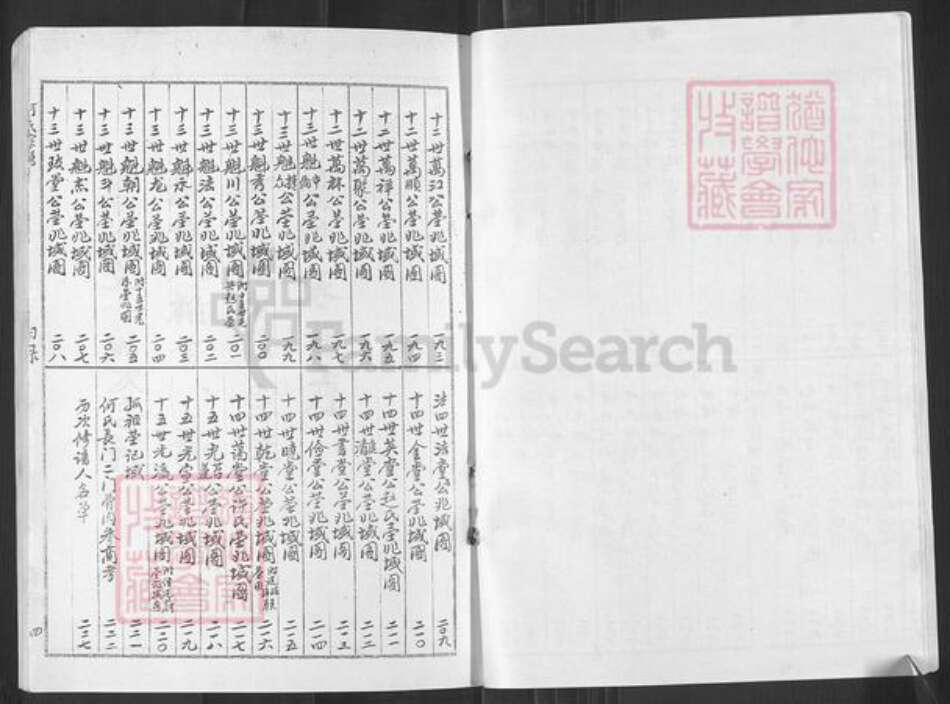 十二世萬江公塋兆域圖 一九三
十二世萬順公塋兆域圖 一九四
十二世萬祥公塋兆域圖 一九五
十二世萬聚公塋兆域圖 一九六
十二世萬林公塋兆域圖 一九七
十三世魁中公塋兆域圖 一九八
十三世魁公塋兆域圖 一九九
十三世魁秀公塋兆域圖 二〇〇
十三世魁川公塋兆域圖 二〇一
十三世魁法公塋兆域圖 二〇二
十三世魁永公塋兆域圖 二〇三
十三世魁龙公塋兆域圖 二〇四
十三世魁朝公塋兆域圖 二〇五
十三世魁斗公塋兆域圖 二〇六
十三世魁杰公塋兆域圖 二〇七
十三世璲堂公塋兆域圖 二〇八
法四世法堂公兆域圖 二〇九
十四世金堂公塋兆域圖 二一〇
十四世英堂公赵氏塋兆域圖 二一一
十四世瀛堂公塋兆域圖 二一二
十四世書堂公塋兆域圖 二一三
十四世儉堂公塋兆域圖 二一四
十四世曉堂公塋兆域圖 二一五
十四世乾堂公塋兆域圖 二一六
十四世蔼堂公许氏塋兆域圖 二一七
十五世光公塋兆域圖 二一八
十五世光宗公塋兆域圖 二一九
十五世光遠公塋兆域圖 二二〇
孤祖塋記域 二二一
何氏長门二门骨肉未商考 二二二
历次修谱人名单 二二七
目录
四
猶他家譜學會收藏
FamilySearch